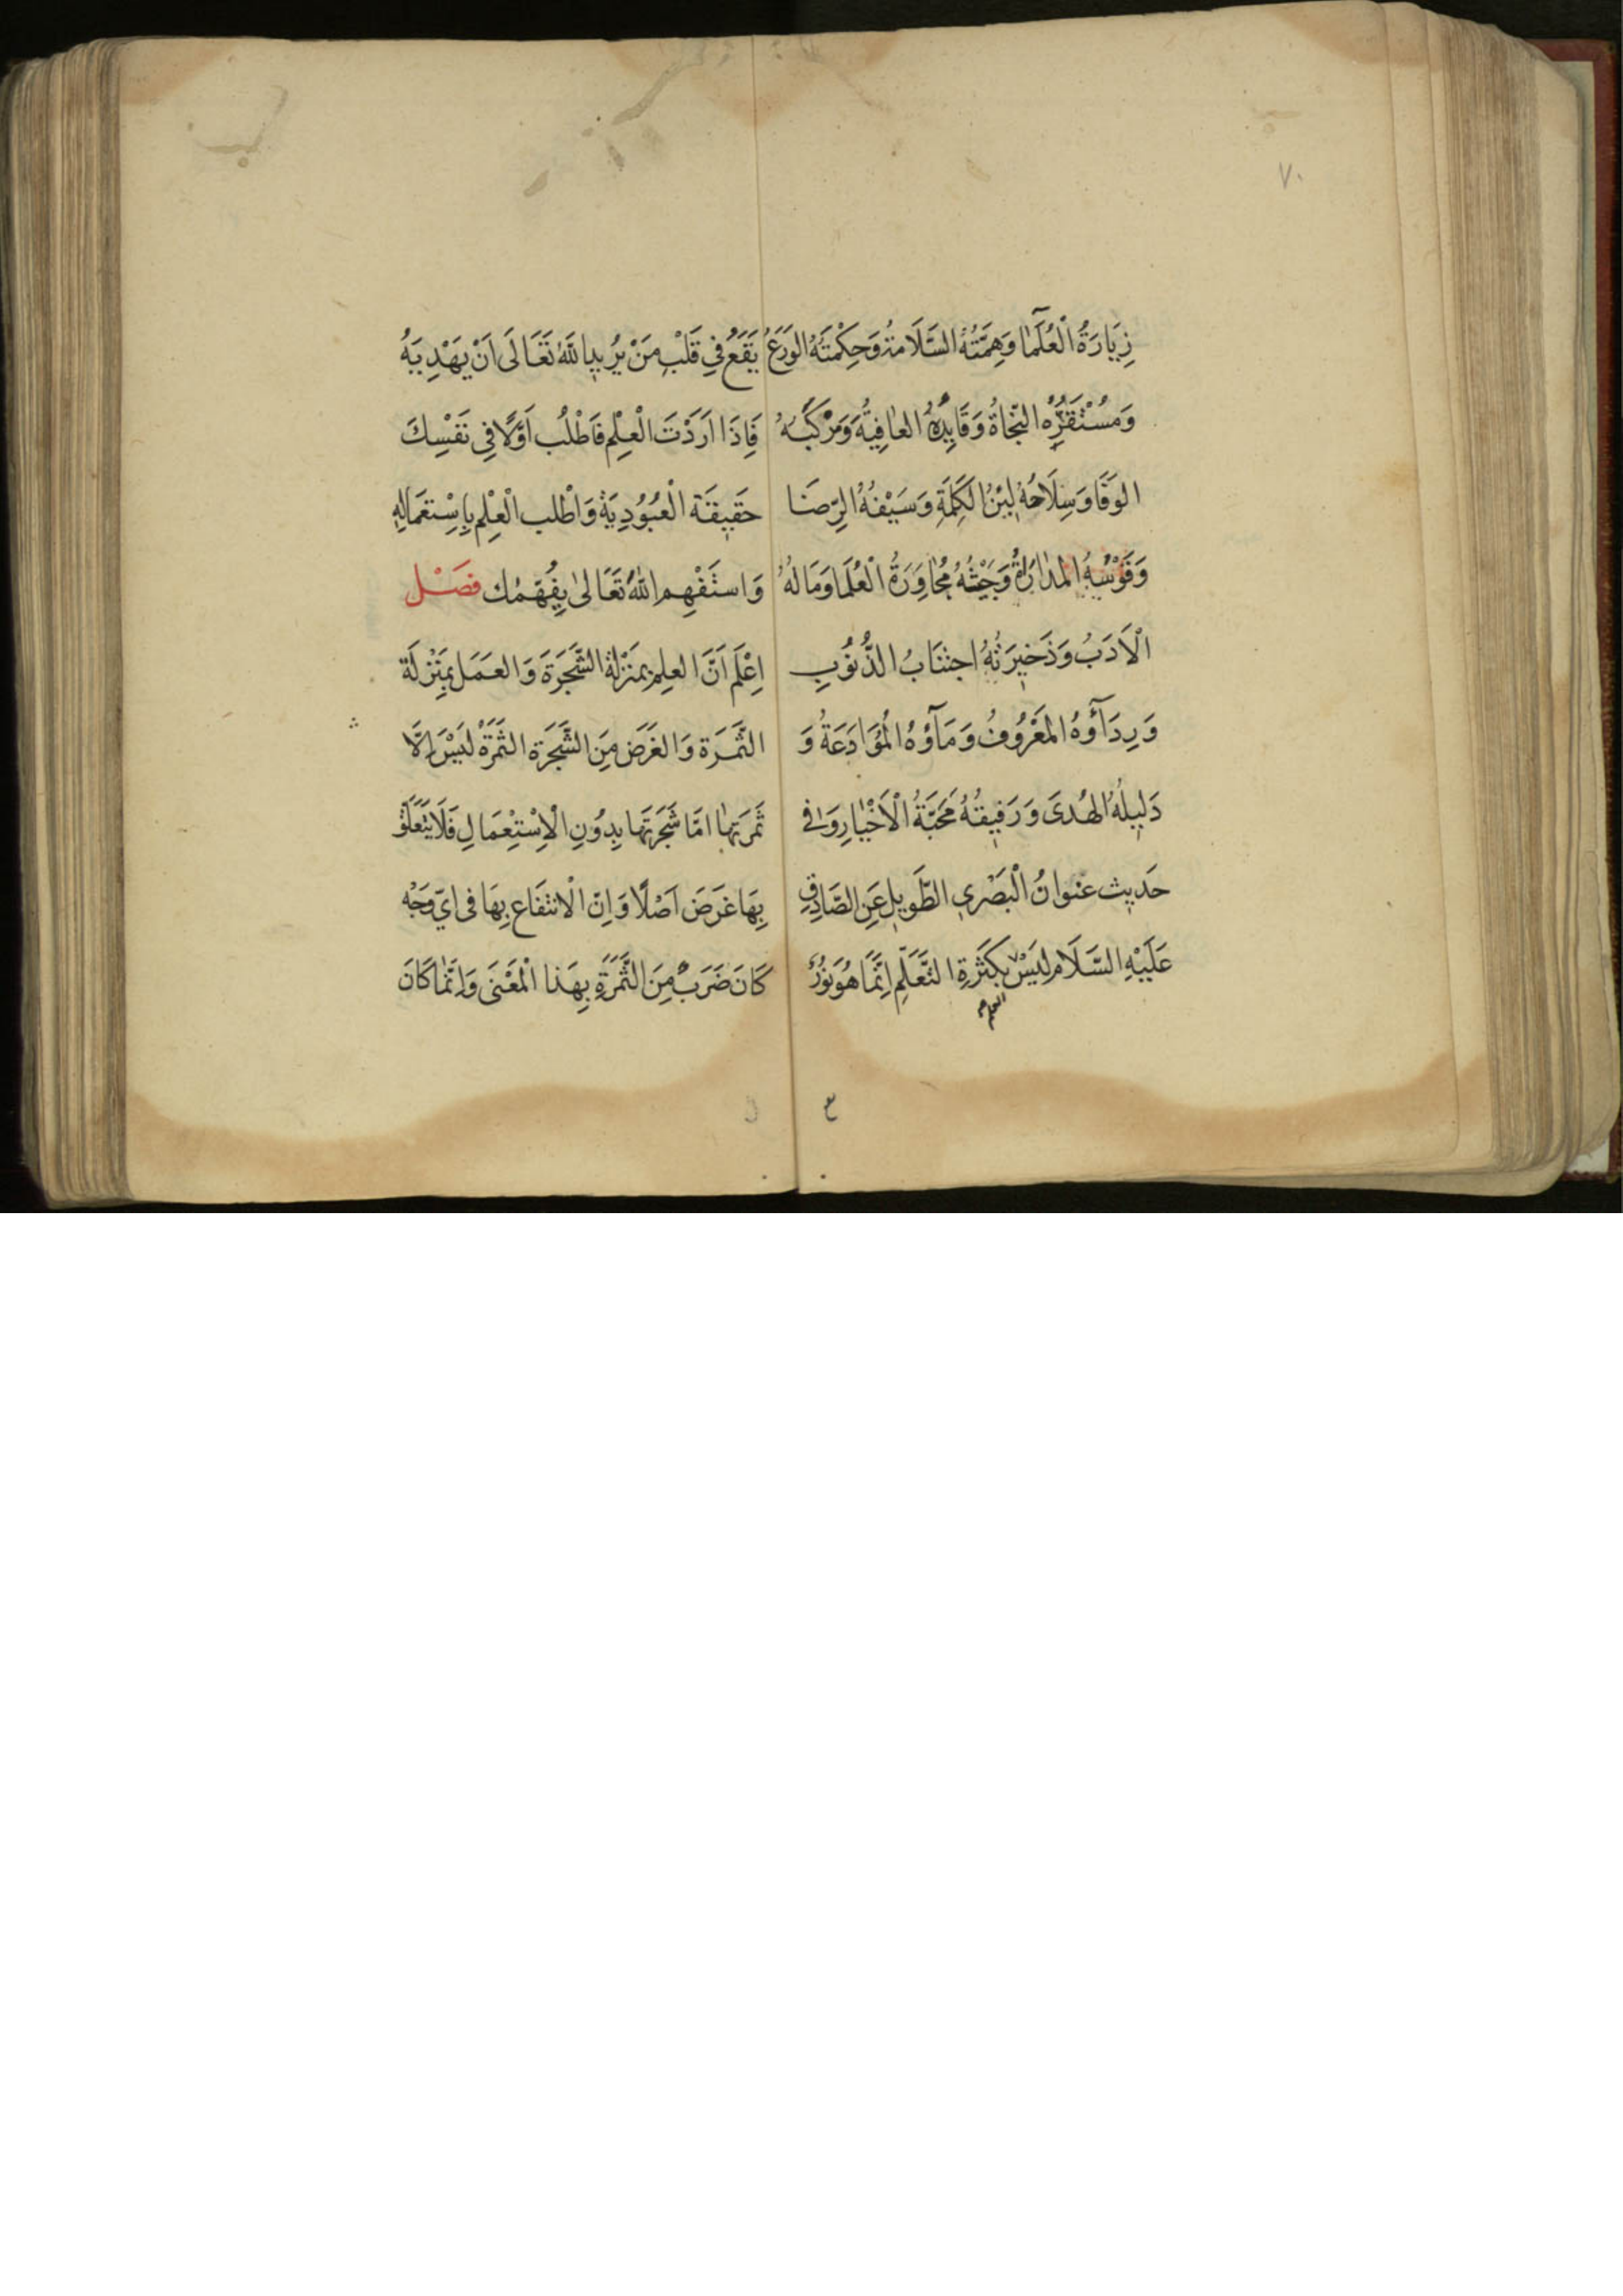 ٧٠
زِيَارَةُ الْعُلَمَآ وَهِمَّتُهُ السَّلَامَةُ وَحِكْمَتُهُ الوَرَعُ
وَمُسْتَقَرُّهُ النَّجَاةُ وَقَايِدُهُ العَافِيَّةُ وَمَرْكَبُهُ
الوَفَا وَسِلَاحُهُ لِيْنُ الكَلِمَةِ وَسَيْفُهُ الرِّضَا
وَقَوْسُهُ المدٰارَاةُ وَجَيْشُهُ مُحٰاوِرَةُ الْعُلَمَا وَمَالُهُ
الْاَدَبُ وَذَخيرَتُهُ اجتنَابُ الذُّنُوبِ
وَرِدَآؤُهُ المَعْرُوفُ وَمَآؤُهُ الْمُوَادَعَةُ وَ
دَليلُهُ الهُدىَ وَرَفيقُهُ مَحَبَّةُ الْاَخْيٰارِ وَفى
حَديث عنوانُ الْبَصْري الطَّويل عَنِ الصَّادِقِ
عَلَيْهِ السَّلَام لَيْسَ بِكَثْرَةِ التَّعَلُّمِ اِنَّمَا هُوَ نُورٌ
العلم
يَقَعُ فِي قَلْبِ مَنْ يُريدِ اللّٰهُ تَعَالَى اَنْ يَهْدِيَهُ
فَاِذَا اَرَدْتَ الْعِلْمَ فَاطْلُب اَوَّلًا في نَفْسِكَ
حَقيقَة الْعُبُوُدِيَة وَاطْلب الْعِلْم بِاِسْتعمَالِهِ
وَاستَفْهِم اللّٰهَ تَعَالىٰ يُفَهِّمُك فصَْل
اِعْلَم اَنَّ العِلم بمَنَزْلة الشَّجَرَةَ وَالعَمَل بمَنْزلَة
الثَّمَرَة وَالغَرَضَ مِنَ الشَّجَرَة الثَمَرَةُ لَيْسَ اِلَّا
ثَمَرَتهٰا امَّا شَجَرَتهَا بِدُونِ الْاِسْتِعْمَالِ فَلَا يَتَعَلَّق
بِهَا غَرَضَ اَصْلًا وَاِنّ الْانتفَاع بِهَا فى ايّ وَجْه
كَانَ ضَرَبٌ مِنَ الثَّمَرَةِ بِهَذا الْمَعْنَى وَاِنَّمٰا كَانَ